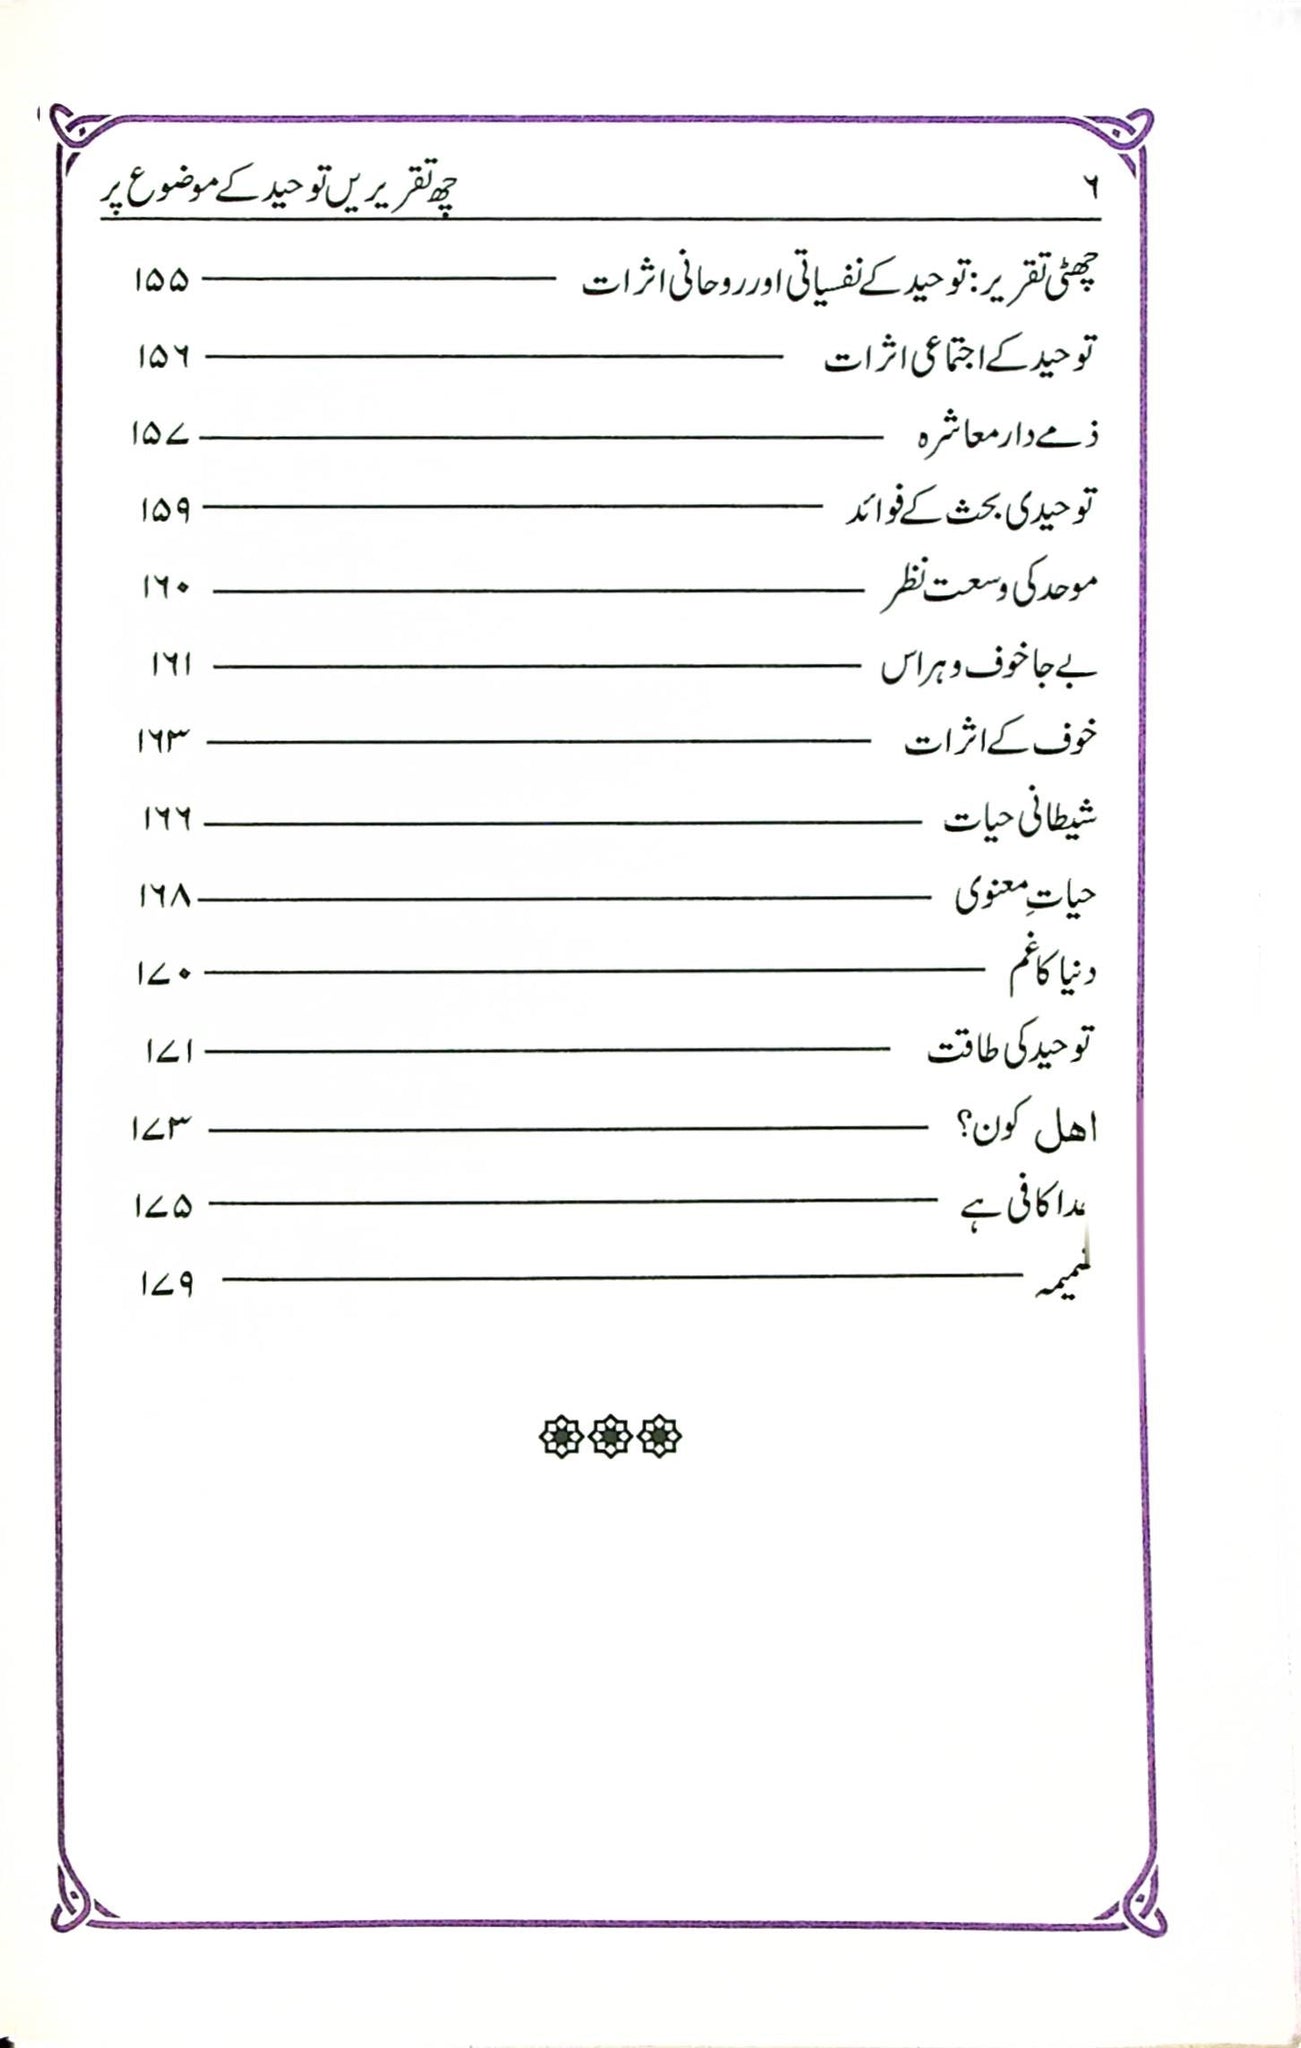 ۶ چھ تقریریں توحید کے موضوع پر
چھٹی تقریر: توحید کے نفسیاتی اور روحانی اثرات ۱۵۵
توحید کے اجتماعی اثرات ۱۵۶
ذمے دار معاشرہ ۱۵۷
توحیدی بحث کے فوائد ۱۵۹
موحد کی وسعت نظر ۱۶۰
بے جا خوف و ہراس ۱۶۱
خوف کے اثرات ۱۶۳
شیطانی حیات ۱۶۶
حیاتِ معنوی ۱۶۸
دنیا کا غم ۱۷۰
توحید کی طاقت ۱۷۱
اھل کون؟ ۱۷۳
خدا کافی ہے ۱۷۵
ضمیمہ ۱۷۹